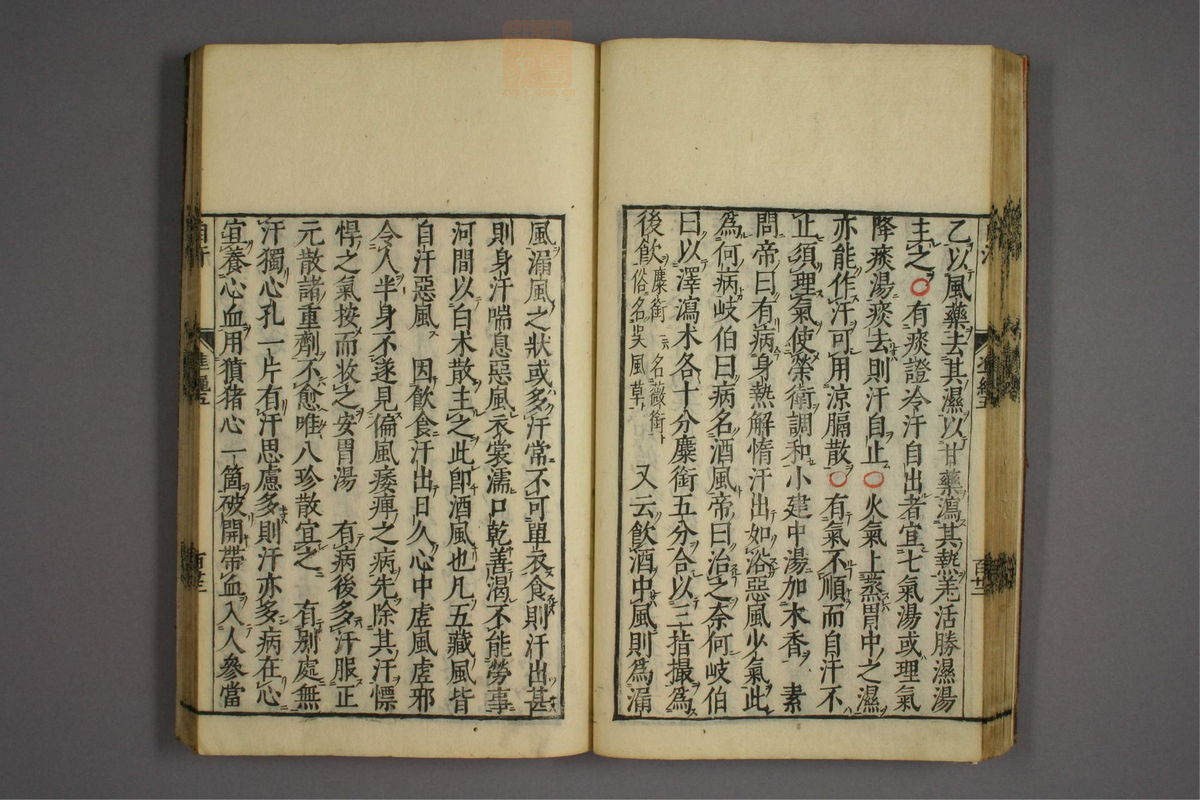 乙以風藥去其濕以甘藥瀉其熱羌活勝濕湯
主之○有痰證冷汗自出者宜七氣湯或理氣
降痰湯痰去則汗自止○火氣上蒸胃中之濕
亦能作汗可用涼膈散○有氣不順而自汗不
止須理氣使榮衛調和小建中湯加木香 素
問帝曰有病身熱解惰汗出如浴惡風少氣此
為何病岐伯曰病名酒風帝曰治之奈何岐伯
曰以澤瀉朮各十分麋銜五分合以三指撮為
後飲麋銜一名薇銜俗名吳風草 又云飲酒中風則為漏
風漏風之狀或多汗常不可單衣食則汗出甚
則身汗喘息惡風衣裳濡口乾善渴不能勞事
河間以白朮散主之此即酒風也凡五藏風皆
自汗惡風 因飲食汗出日久心中虛風虛邪
令人半身不遂見偏風痿痺之病先除其汗慓
悍之氣按而收之安胃湯 有病後多汗服正
元散諸重劑不愈唯八珍散宜之 有別處無
汗獨心孔一片有汗思慮多則汗亦多病在心
宜養心血用豶猪心一箇破開帶血入人參當
自汗